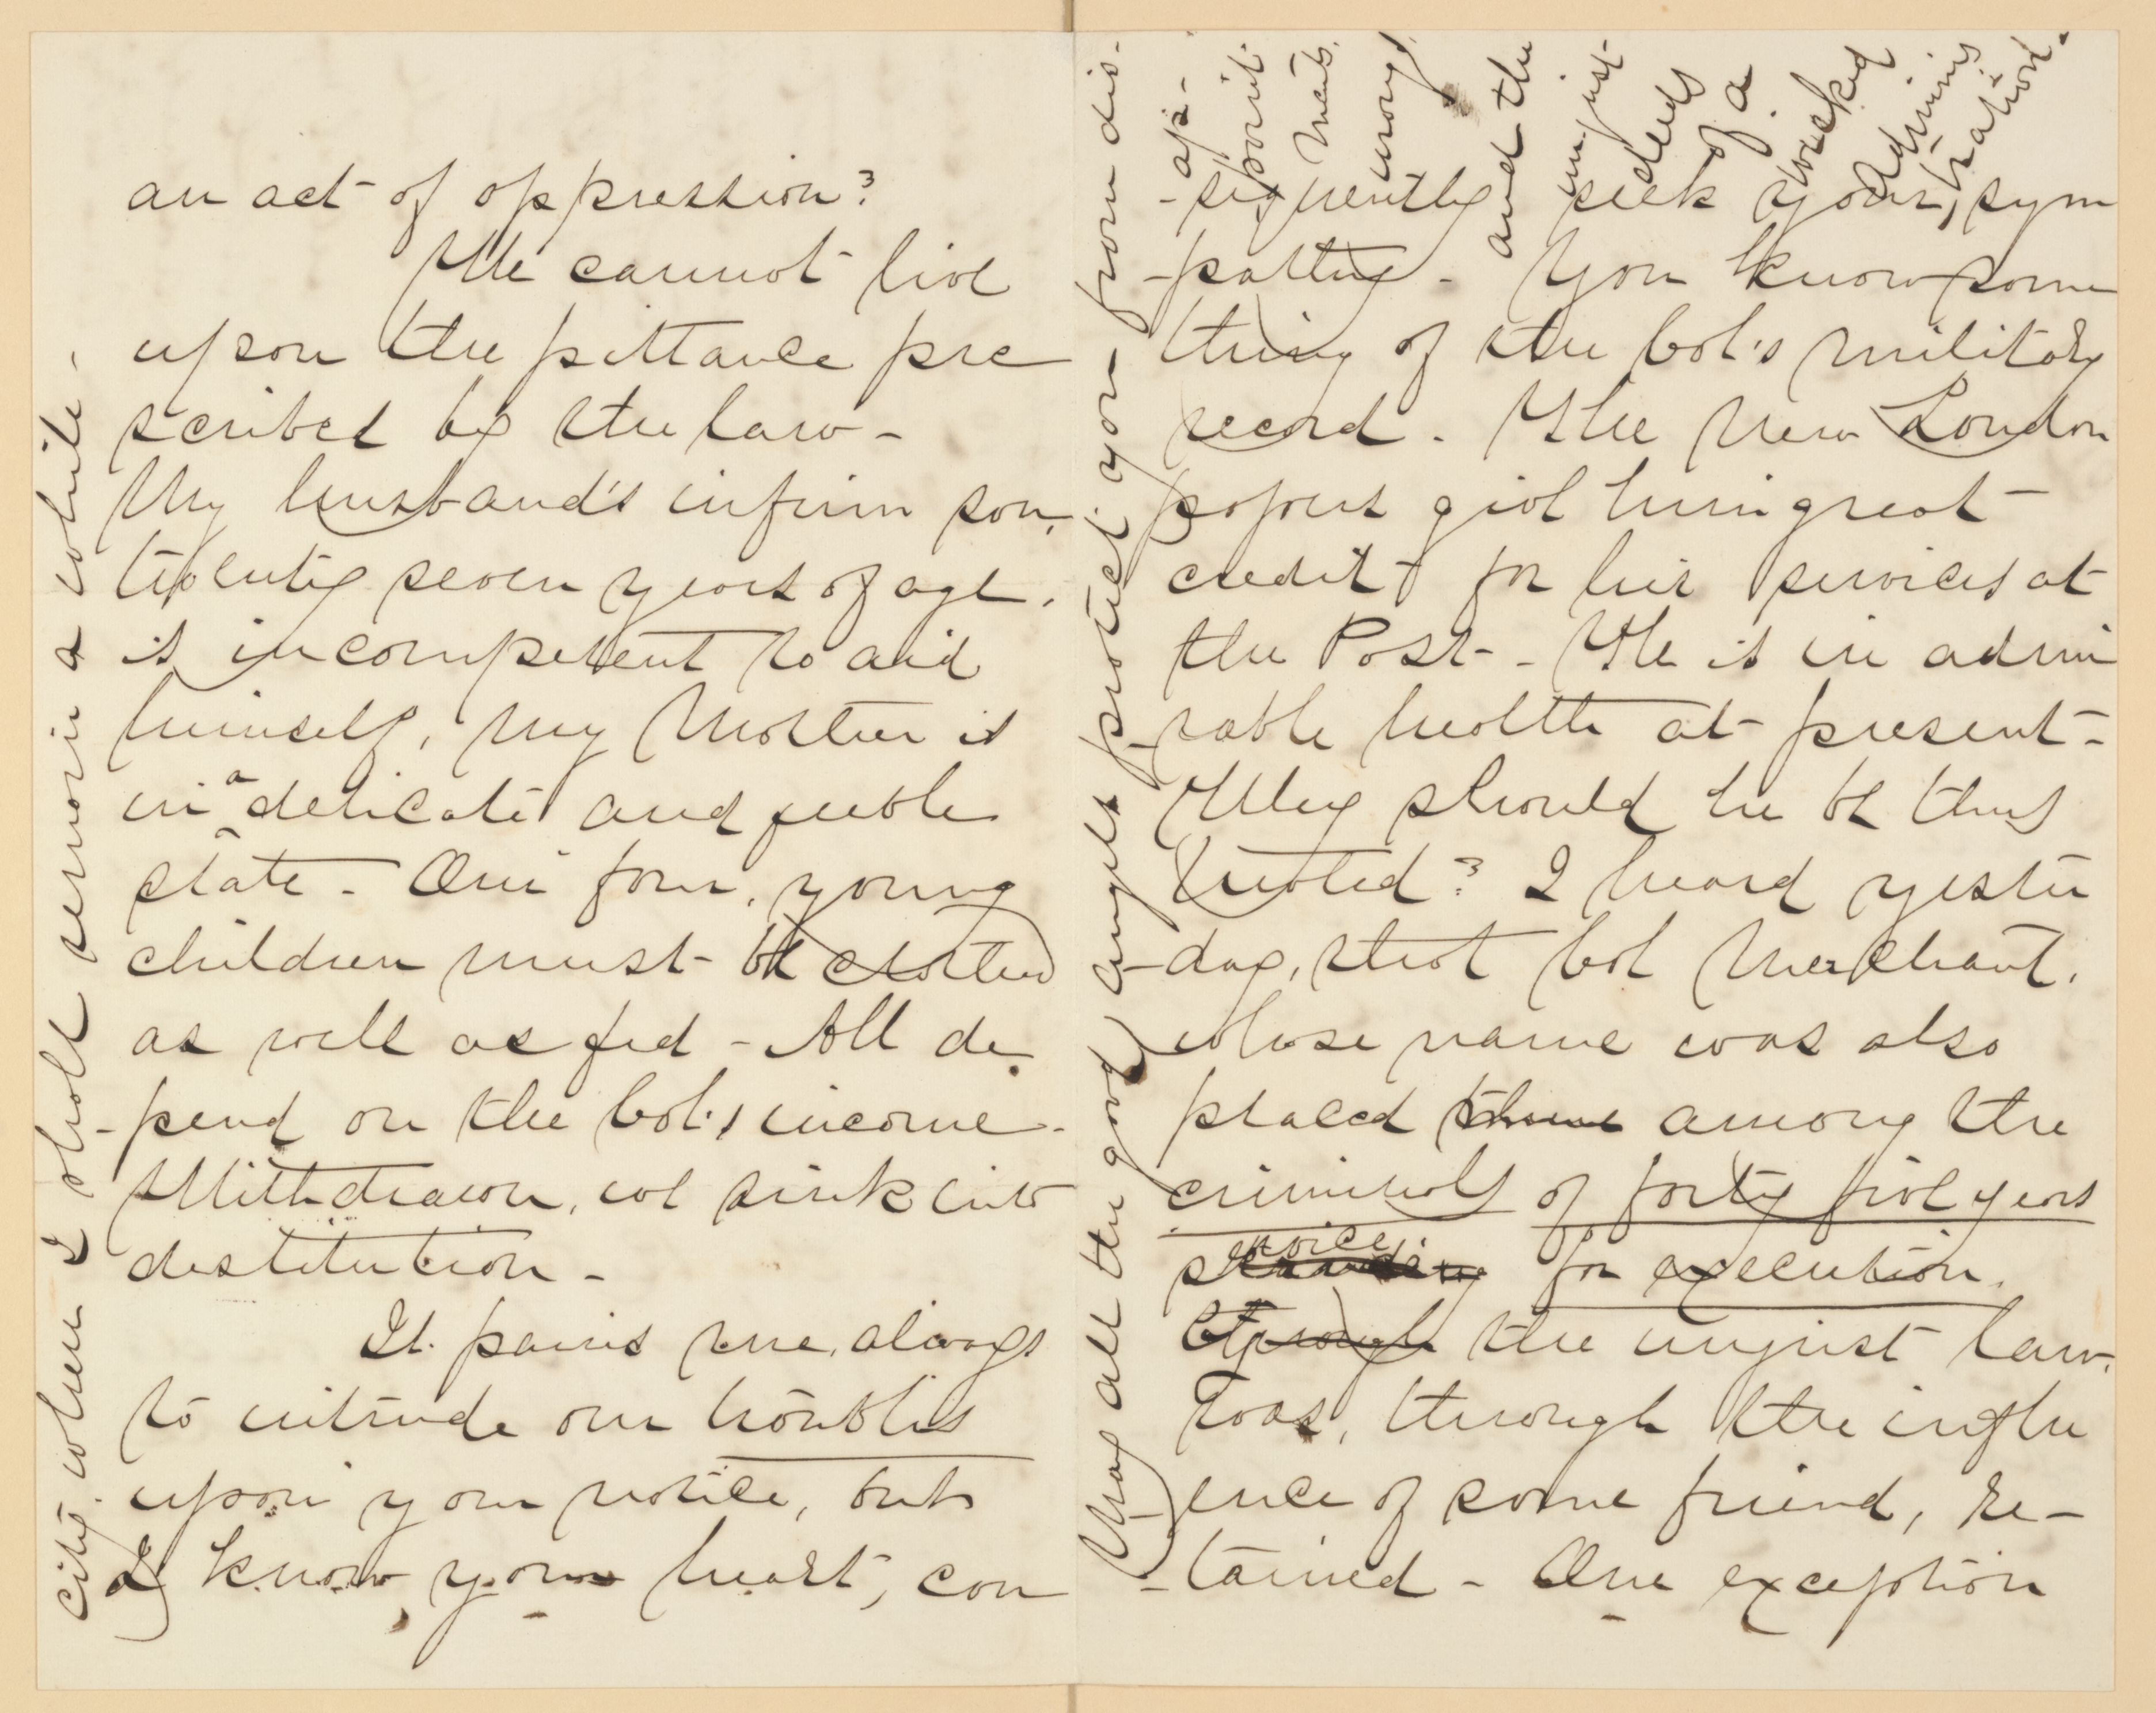 an act of oppression?
We cannot live
upon the pittance pre
scribed by the law -
My husband's infirm son,
twenty seven years of age,
is incompetent to aid
himself, my Mother is
in a delicate and feeble
state - Our four, young
children must be clothed
as well as fed - All de
-pend on the Col's income -
Withdrawn, we sink into
destitution -
It pains me, always
to intrude our troubles
upon your notice, but
I know your heart, con
city when I shall remain a while -
-sequently seek your, sym
-pathy - You know some
thing of the Col's military
record - The New London
papers give him great
credit for his services at
the Post - He is in admi
-rable health at present -
Why should he be thus
treated? I heard yester
-day, that Col Merchant,
whose name was also
placed among the
criminals of forty five years
service for execution,
through the unjust law,
was, through the influ
-ence of some friend, re-
-tained - One exception
May all the good angels protect you from dis-
-ap-
point
ments
wrongs
and the
unjust
deeds
of a
wicked
Adminis
tration.